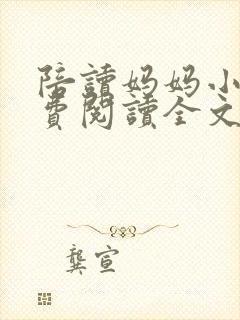 陪讀妈妈小
費閱讀全文
龔宣